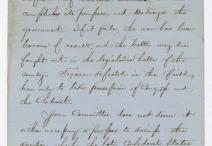 complishes its purpose, and destroys the
government. If it fails, the war has been
barren of results and the battle may be
fought out in the legislative halls of the
country. Treason defeated in the field
has only to take possession of Congress and
the Cabinet.
Your Committee does not deem it
either necessary or proper to discuss the
question whether the late Confederate States